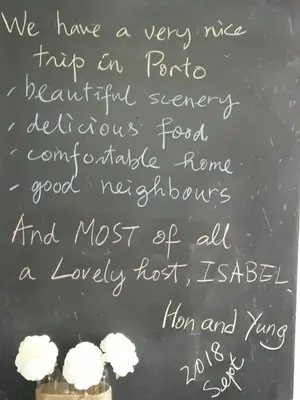 We have a very nice
trip in Porto
, beautiful scenery
, delicious food
, comfortable home
, good neighbours
And MOST of all
a Lovely host, ISABEL
Hon and Yung
2018
Sept